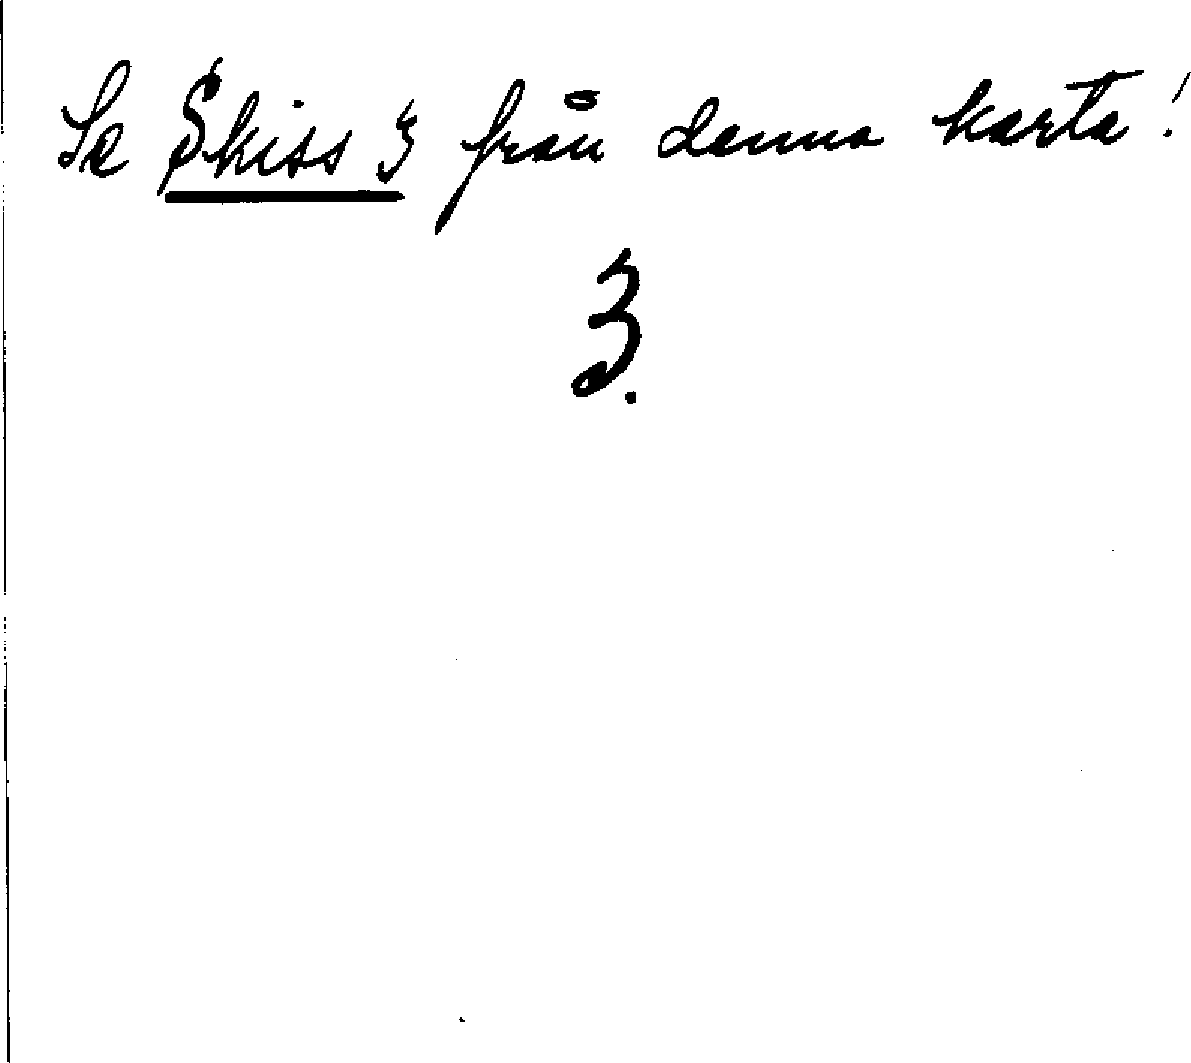 Se Skiss 3 från denna karta!
3.